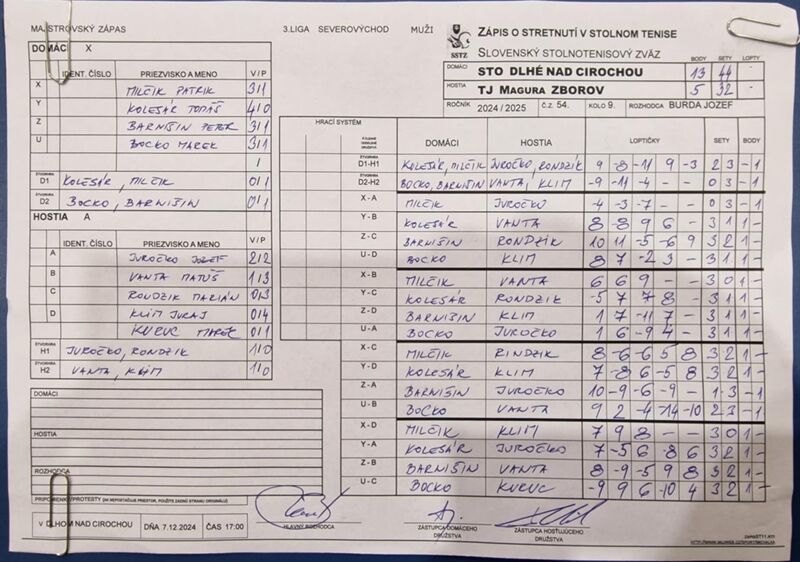 MAJSTROVSKÝ ZÁPAS
3.LIGA SEVEROVÝCHOD MUŽI
ZÁPIS O STRETNUTÍ V STOLNOM TENISE
SSTZ SLOVENSKÝ STOLNOTENISOVÝ ZVÄZ
DOMÁCI STO DLHÉ NAD CIROCHOU BODY 13 SETY 44 LOPTY -
HOSTIA TJ MAGURA ZBOROV 5 32 -
ROČNÍK 2024 / 2025 Č.Z. 54. KOLO 9. ROZHODCA BURDA JOZEF
DOMÁCI X
IDENT. ČÍSLO PRIEZVISKO A MENO V/P
X MILČIK PATRIK 3/1
Y KOLESÁR TOMÁŠ 4/0
Z BARNIŠIN PETER 3/1
U BOCKO MAREK 3/1
/
ŠTVORHRA D1 KOLESÁR, MILČIK 0/1
ŠTVORHRA D2 BOCKO, BARNIŠIN 0/1
HOSTIA A
IDENT. ČÍSLO PRIEZVISKO A MENO V/P
A JUROČKO JOZEF 2/2
B VANTA MATÚŠ 1/3
C RONDZIK MARIÁN 0/3
D KLIM JURAJ 0/4
KURUC MAREK 0/1
ŠTVORHRA H1 JUROČKO, RONDZIK 1/0
ŠTVORHRA H2 VANTA, KLIM 1/0
DOMÁCI
HOSTIA
ROZHODCA
PRIPOMIENKY/PROTESTY (AK NEPOSTAČUJE PRIESTOR, POUŽITE ZADNÚ STRANU ORIGINÁLU)
V DLHOM NAD CIROCHOU DŇA 7.12.2024 ČAS 17:00
HRACÍ SYSTÉM
DOMÁCI HOSTIA LOPTIČKY SETY BODY
ŠTVORHRA D1-H1 KOLESÁR, MILČIK JUROČKO, RONDZIK 9 -8 -11 9 -3 2 3 -1
ŠTVORHRA D2-H2 BOCKO, BARNIŠIN VANTA, KLIM -9 -11 -4 - - 0 3 -1
X-A MILČIK JUROČKO -4 -3 -7 - - 0 3 -1
Y-B KOLESÁR VANTA 8 -8 9 6 - 3 1 1 -
Z-C BARNIŠIN RONDZIK 10 11 -5 -6 9 3 2 1 -
U-D BOCKO KLIM 8 7 -2 3 - 3 1 1 -
X-B MILČIK VANTA 6 6 9 - - 3 0 1 -
Y-C KOLESÁR RONDZIK -5 7 7 8 - 3 1 1 -
Z-D BARNIŠIN KLIM 1 7 -11 7 - 3 1 1 -
U-A BOCKO JUROČKO 1 6 -9 4 - 3 1 1 -
X-C MILČIK RINDZIK 8 -6 -6 5 8 3 2 1 -
Y-D KOLESÁR KLIM 7 -8 6 -5 8 3 2 1 -
Z-A BARNIŠIN JUROČKO 10 -9 -6 -9 - 1 3 -1
U-B BOCKO VANTA 9 2 -4 -14 -10 2 3 -1
X-D MILČIK KLIM 7 9 8 - - 3 0 1 -
Y-A KOLESÁR JUROČKO 7 -5 6 -8 6 3 2 1 -
Z-B BARNIŠIN VANTA 8 -9 -5 9 8 3 2 1 -
U-C BOCKO KURUC -9 9 6 -10 4 3 2 1 -
HLAVNÝ ROZHODCA
ZÁSTUPCA DOMÁCEHO DRUŽSTVA
ZÁSTUPCA HOSŤUJÚCEHO DRUŽSTVA